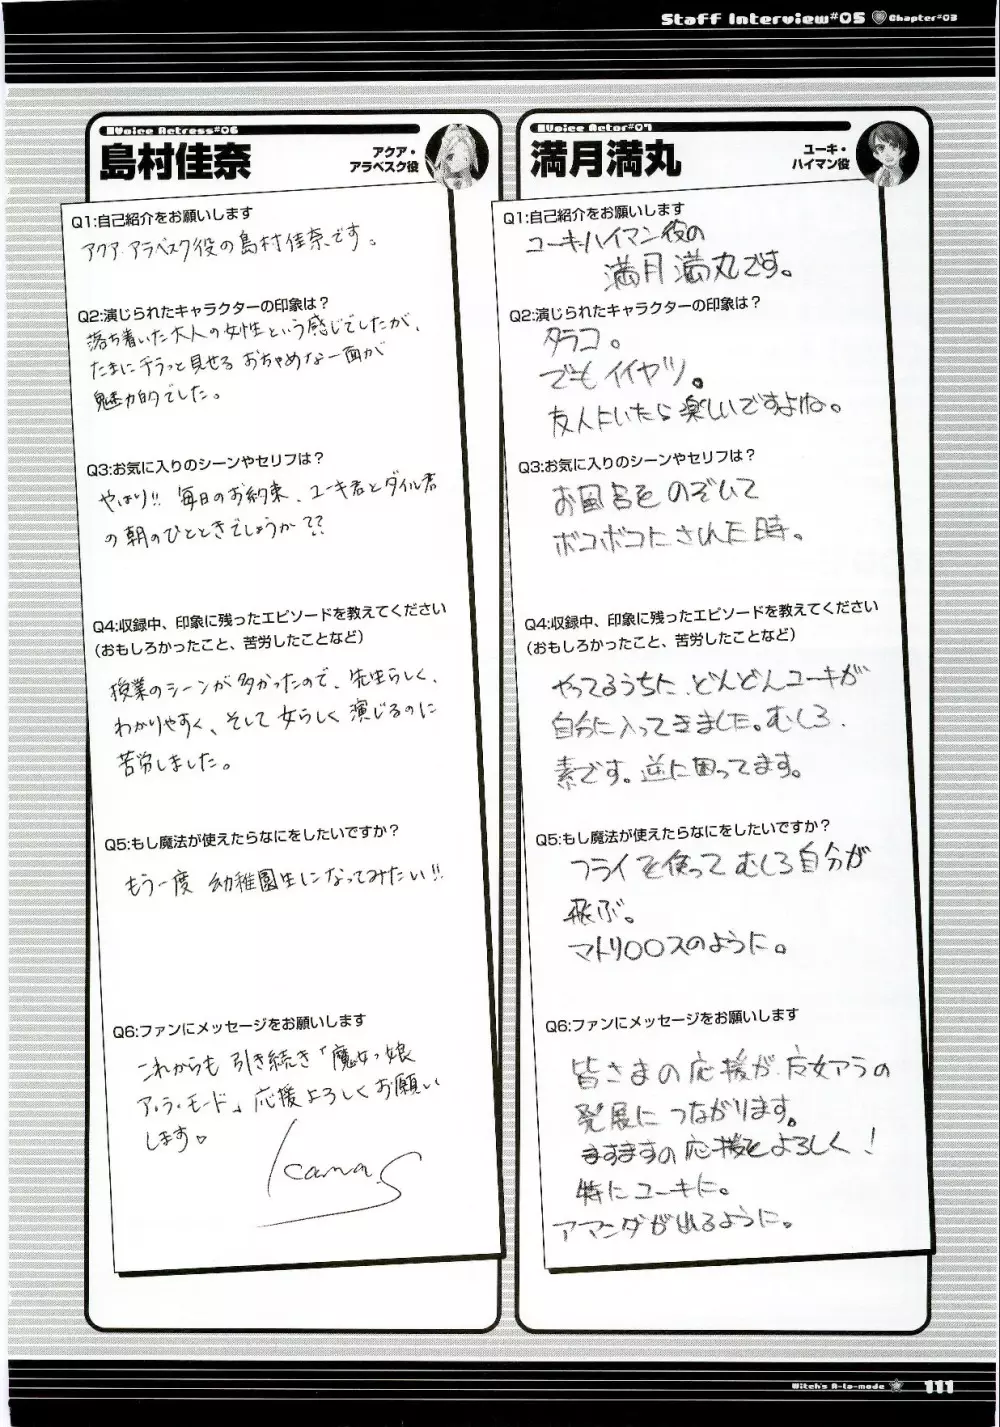 Staff Interview#05 Chapter#03
Voice Actress#06
島村佳奈
アクア・
アラベスク役
Q1:自己紹介をお願いします
アクア・アラベスク役の島村佳奈です。
Q2:演じられたキャラクターの印象は？
落ち着いた大人の女性という感じでしたが、
たまにチラっと見せる おちゃめな一面が
魅力的でした。
Q3:お気に入りのシーンやセリフは？
やはり!! 毎日のお約束、ユーキ君とダイル君
の朝のひとときでしょうか??
Q4:収録中、印象に残ったエピソードを教えてください
（おもしろかったこと、苦労したことなど）
授業のシーンが多かったので、先生らしく、
わかりやすく、そして女らしく演じるのに
苦労しました。
Q5:もし魔法が使えたらなにをしたいですか？
もう一度 幼稚園生になってみたい!!
Q6:ファンにメッセージをお願いします
これからも 引き続き「魔女っ娘
ア・ラ・モード」応援よろしくお願い
します♡
Kana.S
Voice Actor#07
満月満丸
ユーキ・
ハイマン役
Q1:自己紹介をお願いします
ユーキ・ハイマン役の
満月満丸です。
Q2:演じられたキャラクターの印象は？
タラコ。
でもイイヤツ。
友人にいたら楽しいですよね。
Q3:お気に入りのシーンやセリフは？
お風呂をのぞいて
ボコボコにされた時。
Q4:収録中、印象に残ったエピソードを教えてください
（おもしろかったこと、苦労したことなど）
やってるうちに、どんどんユーキが
自分に入ってきました。むしろ、
素です。逆に困ってます。
Q5:もし魔法が使えたらなにをしたいですか？
フライを使って むしろ自分が
飛ぶ。
マトリ〇〇スのように。
Q6:ファンにメッセージをお願いします
皆さまの応援が、女アラの
発展に つながります。
ますますの応援をよろしく！
特にユーキに。
アマンダが出るように。
Witch's A-la-mode 111